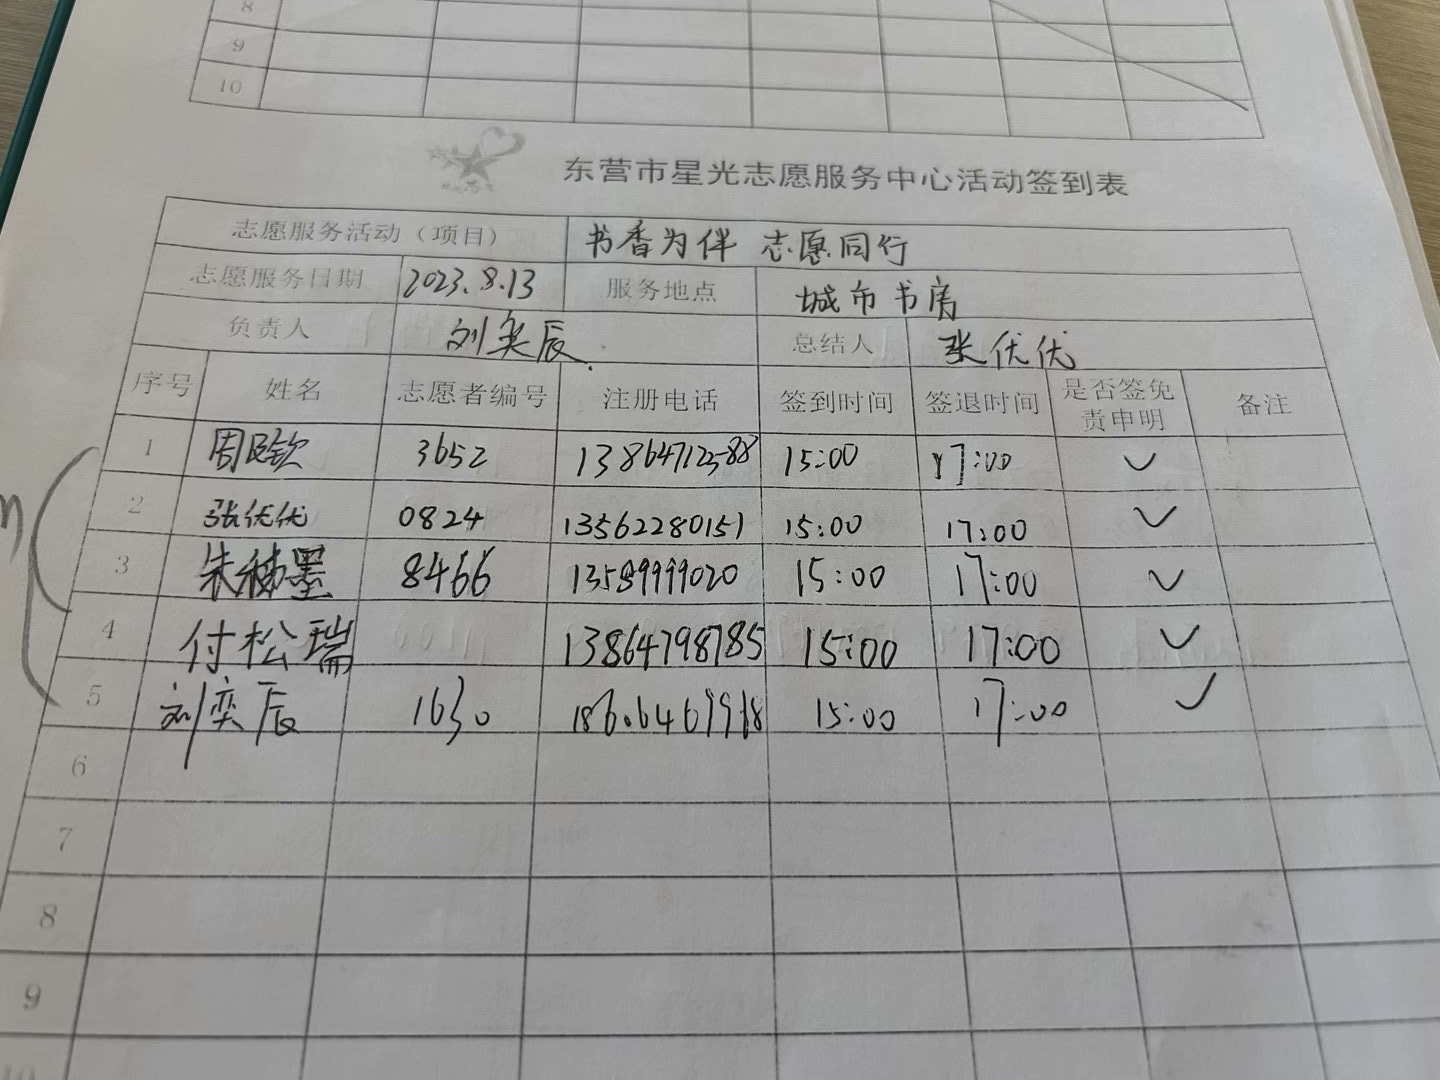 8
9
10
东营市星光志愿服务中心活动签到表
志愿服务活动（项目） 书香为伴 志愿同行
志愿服务日期 2023.8.13 服务地点 城市书房
负责人 刘奕辰 总结人 张优优
序号 姓名 志愿者编号 注册电话 签到时间 签退时间 是否签免责申明 备注
1 周 钦 3652 13864712588 15:00 17:00 ✓
2 张优优 0824 13562280151 15:00 17:00 ✓
3 朱 墨 8466 13589999020 15:00 17:00 ✓
4 付松瑞 13864798785 15:00 17:00 ✓
5 刘奕辰 1630 18606469918 15:00 17:00 ✓
6
7
8
9
10